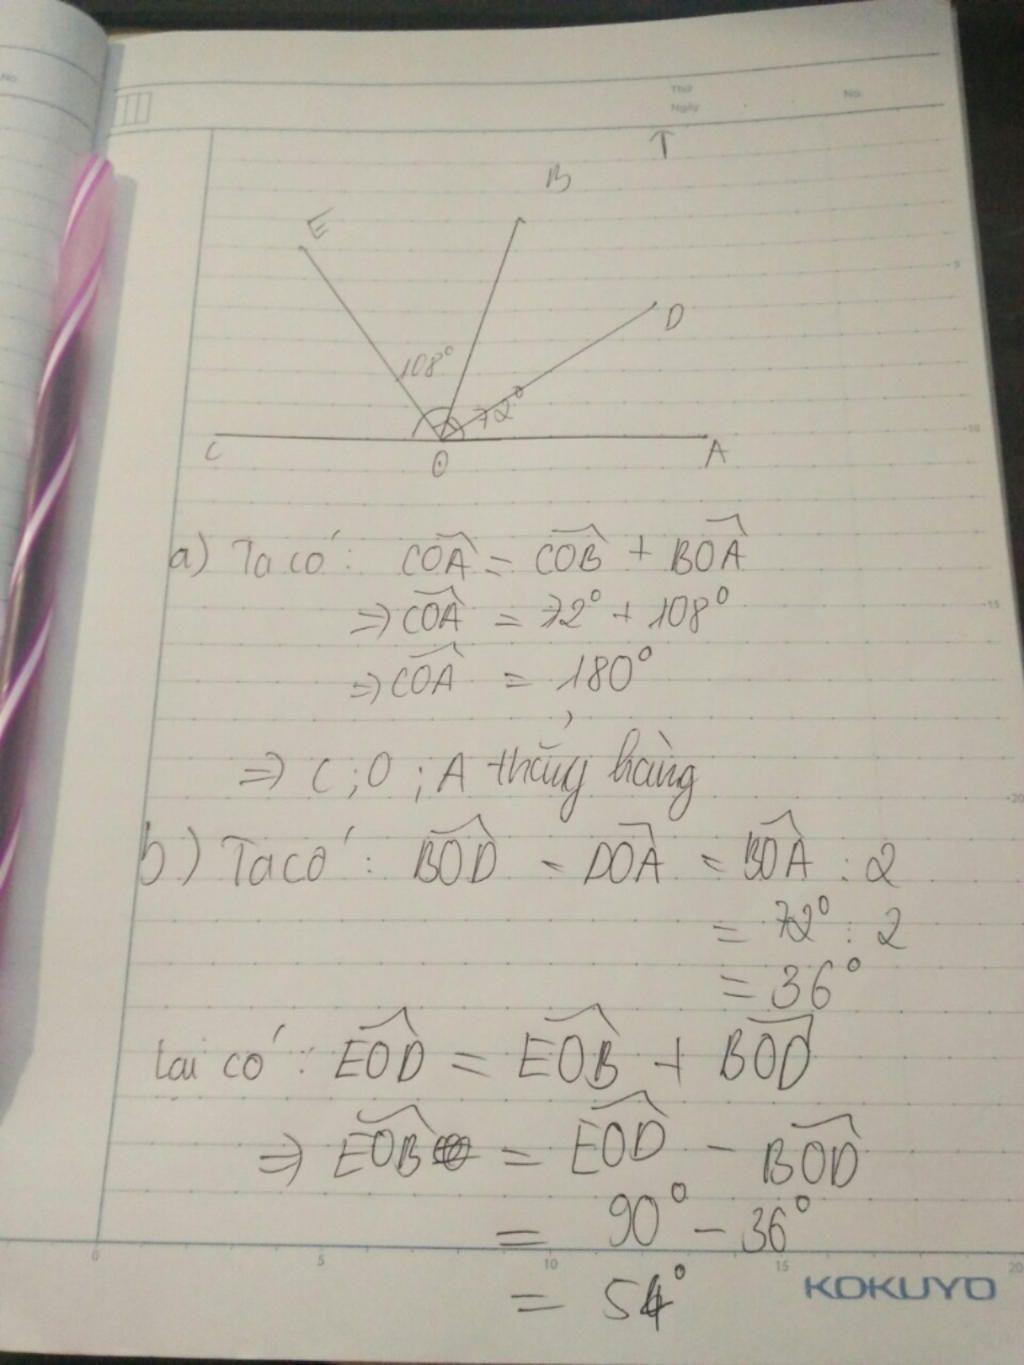 No
Thứ
Ngày
No.
T
B
E
D
5
108°
72°
10
C
O
A
a) Ta có: COA = COB + BOA
⇒ COA = 72° + 108°
15
⇒ COA = 180°
⇒ C; O; A thẳng hàng
20
b) Ta có: BOD = DOA = BOA : 2
= 72° : 2
= 36°
lại có: EOD = EOB + BOD
⇒ EOB = EOD - BOD
= 90° - 36°
0 5 10 15 20
KOKUYO
= 54°